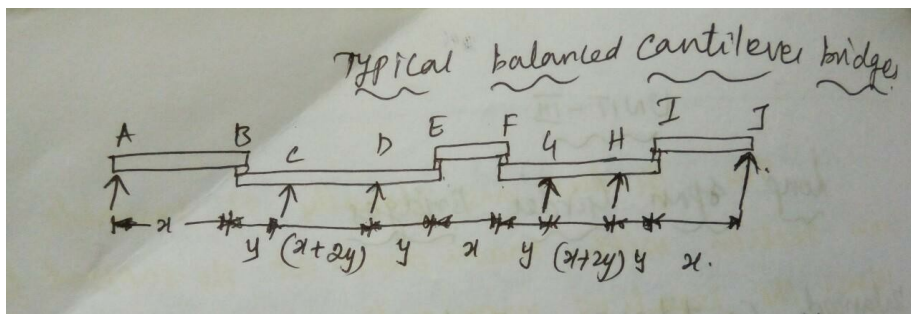 Typical balanced cantilever bridges
A B C D E F G H I J
x y (x+2y) y x y (x+2y) y x.